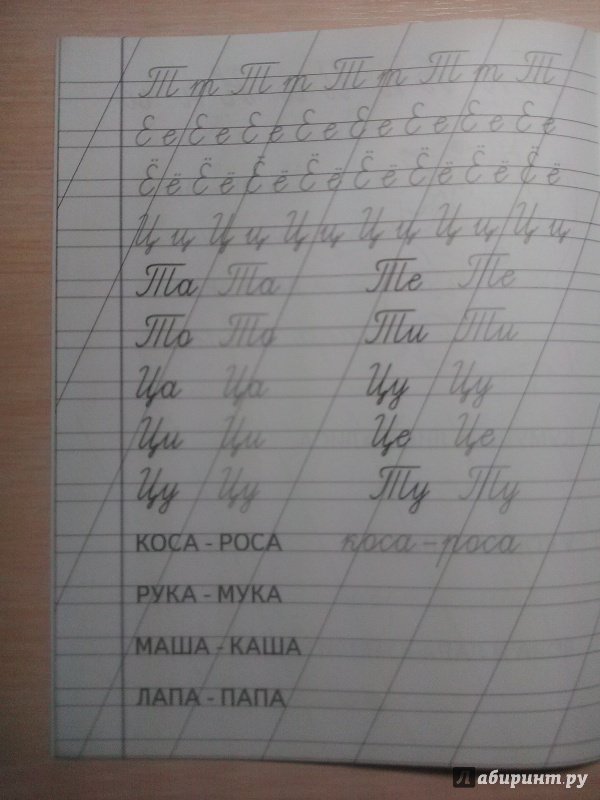 Т т Т т Т т Т т Т
Е е Е е Е е Е е Е е Е е Е е Е е
Ё ё Ё ё Ё ё Ё ё Ё ё Ё ё Ё ё Ё ё
Ц ц Ц ц Ц ц Ц ц Ц ц Ц ц
Та Та Те Те
То То Ти Ти
Ца Ца Цу Цу
Ци Ци Це Це
Цу Цу Ту Ту
КОСА - РОСА коса - роса
РУКА - МУКА
МАША - КАША
ЛАПА - ПАПА
Лабиринт.ру